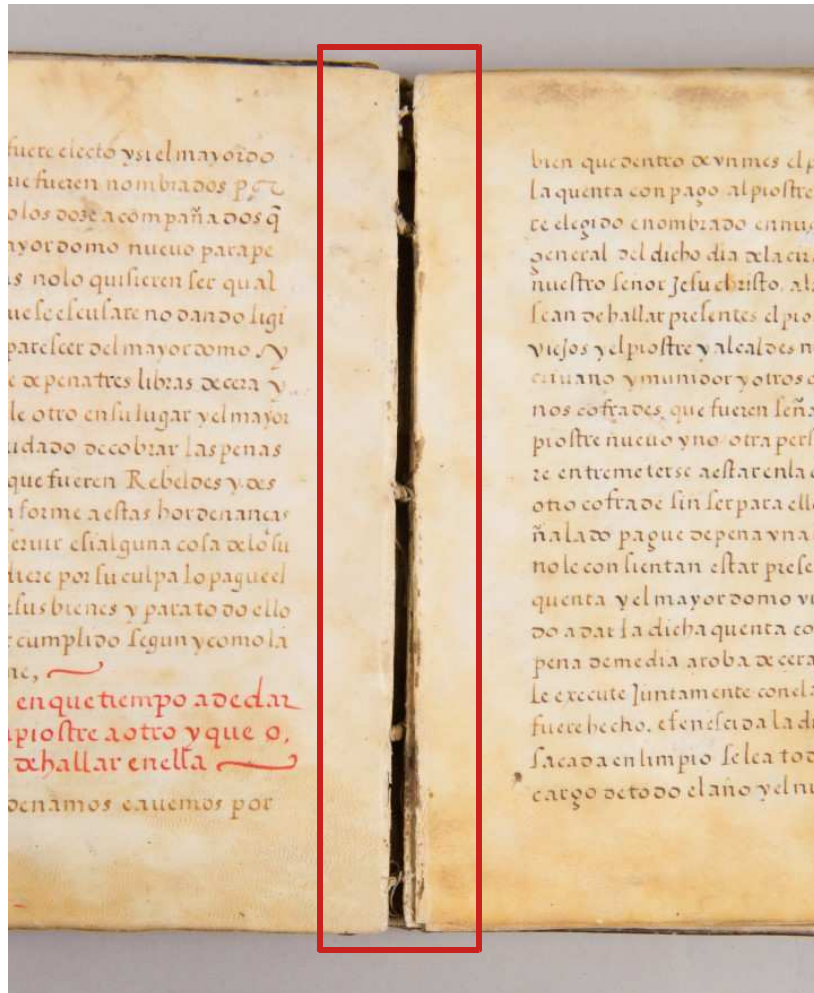 fuere electo ysi el mayordo
ue fueren nombrados por
o los dose acompañados q̃
ayordomo nueuo para pe
s nolo quisieren ser qual
ue se escusare no dando ligi
parescer del mayordomo . y
e de pena tres libras de cera y
le otro en su lugar y el mayor
uidado de cobrar las penas
que fueren Rebeldes y des
forme a estas hordenancas
eruir esi alguna cosa delo su
diere por su culpa lo pague el
sus bienes y para todo ello
cumplido segun y como la
ne,
en que tiempo a de dar
piostre a otro y que o,
de hallar en ella
denamos e auemos por
bien que dentro de vn mes el p
la quenta con pago al piostre
te elegido e nombrado en nue
general del dicho dia de la cir
nuestro señor Jesu christo, al
sean de hallar presentes el pio
viejos y el piostre y alcaldes n
criuano y munidor y otros
nos cofrades que fueren seña
piostre nueuo y no otra pers
re entremeterse a estar en la
otro cofrade sin ser para ello
ñalado pague de pena vna
no le consientan estar prese
quenta y el mayordomo vi
do a dar la dicha quenta co
pena de media aroba de cera
Le execute Juntamente con el a
fuere hecho. e fenescida la di
sacada en limpio se lea tod
cargo de todo el año y el nu